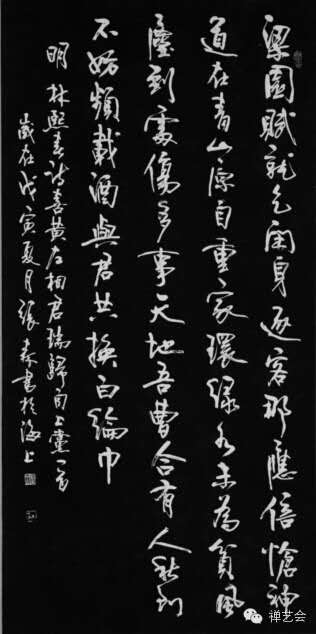 梁園賦就乞閑身逐客那應倍愴神
道在青山原自重家環綠水未為貧風
塵到處傷多事天地吾曹合有人秋到
不妨頻載酒與君共換白綸巾
明林熙春詩喜黃左相君瑞歸自上黨一首
歲在戊寅夏月張森書於海上
禅艺会